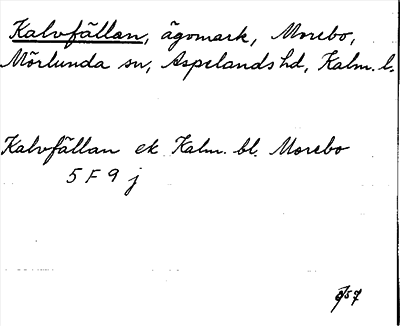 Kalvfällan, ägomark, Morebo,
Mörlunda sn, Aspelands hd, Kalm. l.
Kalvfällan ek Kalm. bl. Morebo
5 F 9 j
57